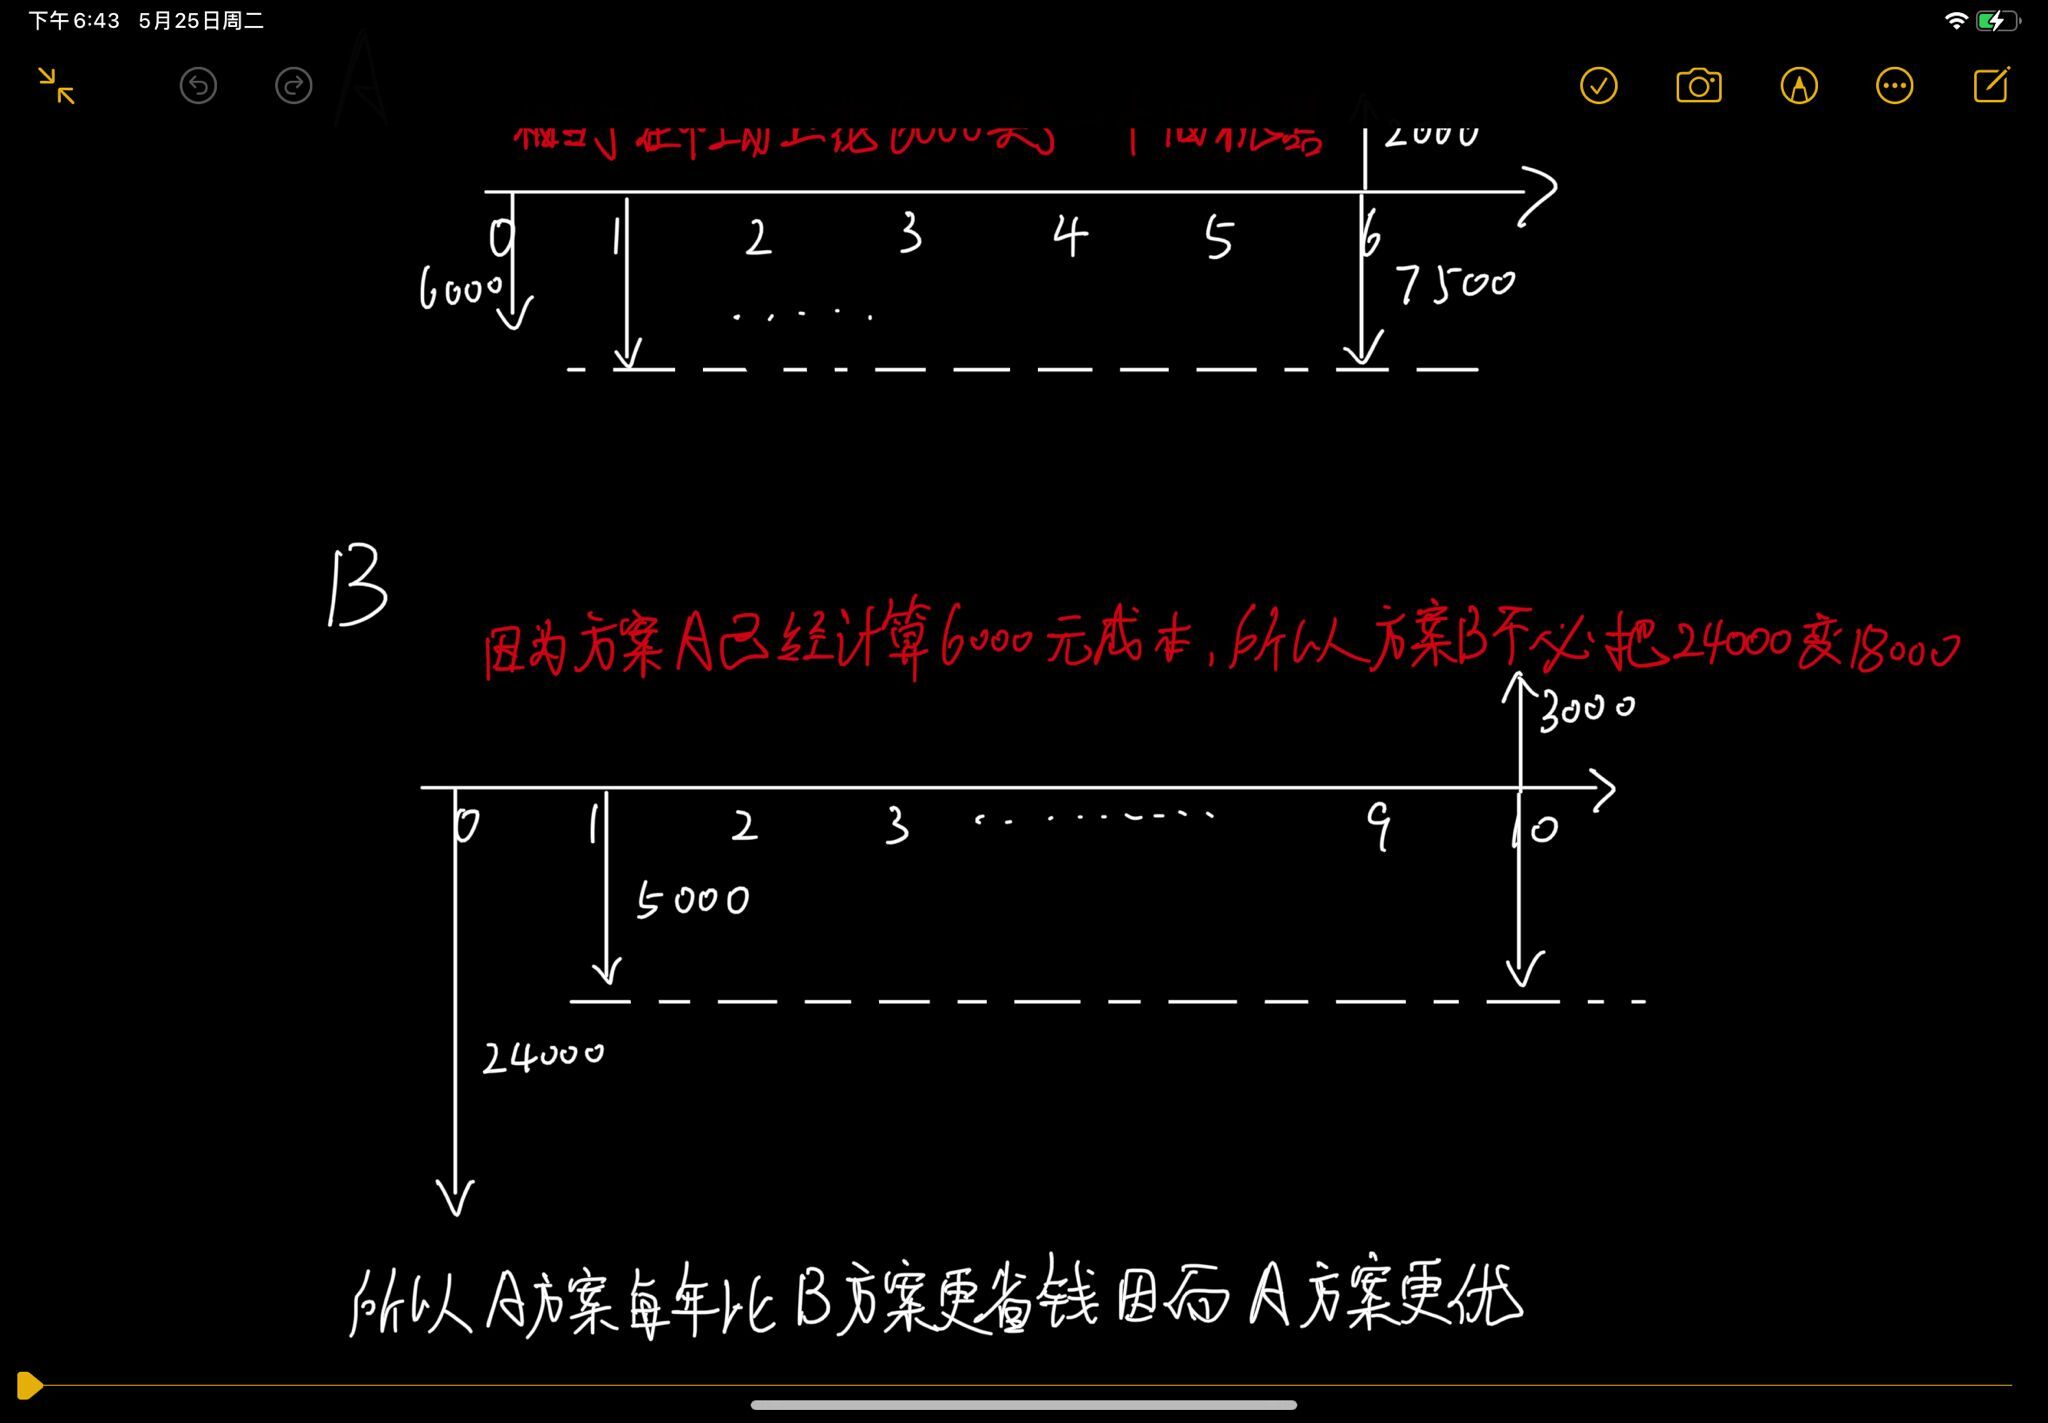 下午6:43 5月25日周二
6000
2000
0 1 2 3 4 5 6
6000
7500
B
因为方案A已经计算6000元成本,所以方案B不必把24000变18000
3000
0 1 2 3 9 10
5000
24000
所以A方案每年比B方案更省钱因而A方案更优